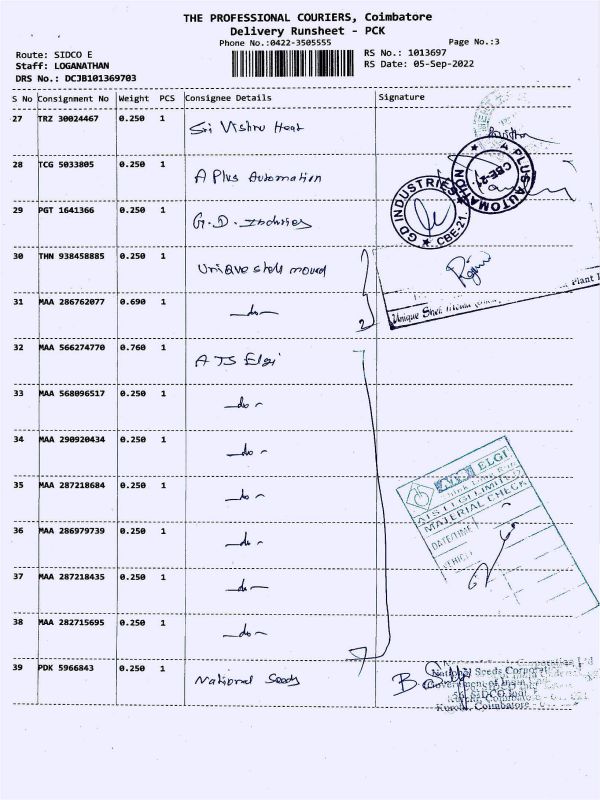 THE PROFESSIONAL COURIERS, Coimbatore
Delivery Runsheet - PCK
Phone No.:0422-3505555 Page No.:3
Route: SIDCO E RS No.: 1013697
Staff: LOGANATHAN RS Date: 05-Sep-2022
DRS No.: DCJB101369703
S No Consignment No Weight PCS Consignee Details Signature
27 TRZ 30024467 0.250 1 Sri Vishnu Heat
28 TCG 5033805 0.250 1 A Plus Automation
A PLUS AUTOMATION CBE-21.
29 PGT 1641366 0.250 1 G.D. Industries
GD INDUSTRIES CBE-21.
30 THN 938458885 0.250 1 Unique shell mould
31 MAA 286762077 0.690 1 -do-
2
Unique Shell Mould Plant I
32 MAA 566274770 0.760 1 ATS Elgi
33 MAA 568096517 0.250 1 -do-
34 MAA 290920434 0.250 1 -do-
35 MAA 287218684 0.250 1 -do-
ATS ELGI
ATS ELGI LIMITED
MATERIAL CHECK
DATE/TIME
VEHICLE
36 MAA 286979739 0.250 1 -do-
37 MAA 287218435 0.250 1 -do-
38 MAA 282715695 0.250 1 -do-
7
39 PDK 5966843 0.250 1 National Seeds
National Seeds Corporation Ltd
Government of India
SIDCO
Kurchi, Coimbatore -